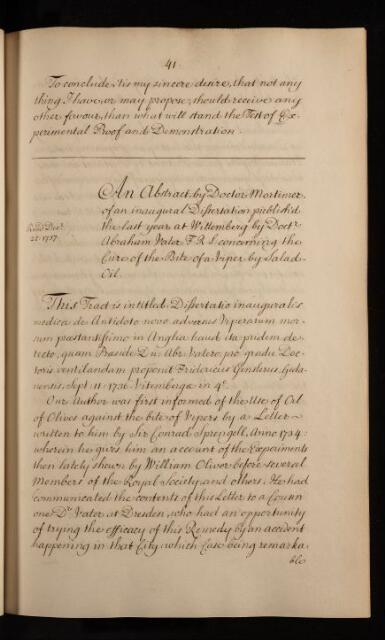 41
To conclude, 'tis my sincere desire, that not any
thing I have, or may propose, should receive any
other favour, than what will stand the Test of Ex-
perimental Proof and Demonstration.
An Abstract by Doctor Mortimer
of an inaugural Dissertation publish'd
Read Decr.
the last year at Wittemberg by Doctr.
22. 1737.
Abraham Vater F.R.S. concerning the
Cure of the Bite of a Viper by Salad-
Oil.
This Tract is intitled Dissertatio inauguralis
medica de Antidoto novo adversus Viperarum mor-
sum præstantissimo in Anglia haud ita pridem de-
tecto, quam Præside D. D. Abr. Vatero, pro gradu Doc-
toris ventilandam proponit Fridericus Gensdrius, Geda-
nensis, Sept. 11. 1736. Vitembergæ in 4o.
Our Author was first informed of the Use of Oil
of Olives against the bite of Vipers by a Letter
written to him by Sir Conrad Sprengell, Anno 1734:
wherein he gives him an account of the Experiments
then lately shewn by William Oliver before several
Members of the Royal Society and others. He had
communicated the contents of this Letter to a Cousin
one Dr. Vater, at Dresden, who had an opportunity
of trying the efficacy of this Remedy by an accident
happening in that City, which Case being remarka-
ble